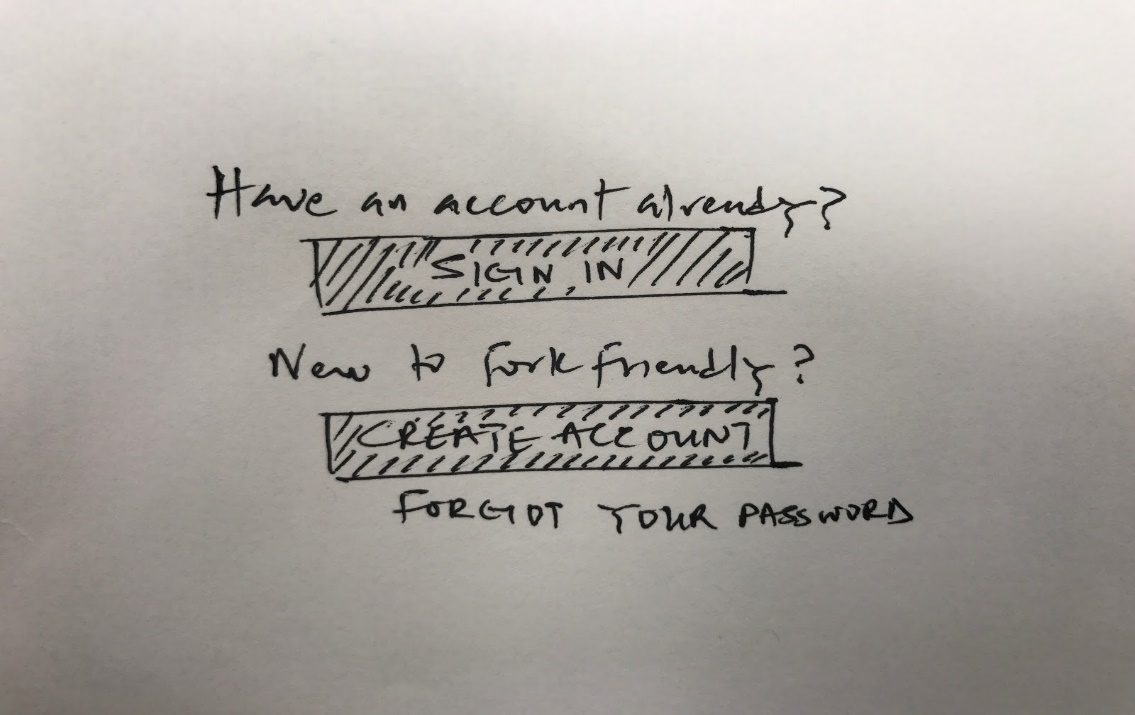 Have an account already?
SIGN IN
New to forkfriendly?
CREATE ACCOUNT
FORGOT YOUR PASSWORD